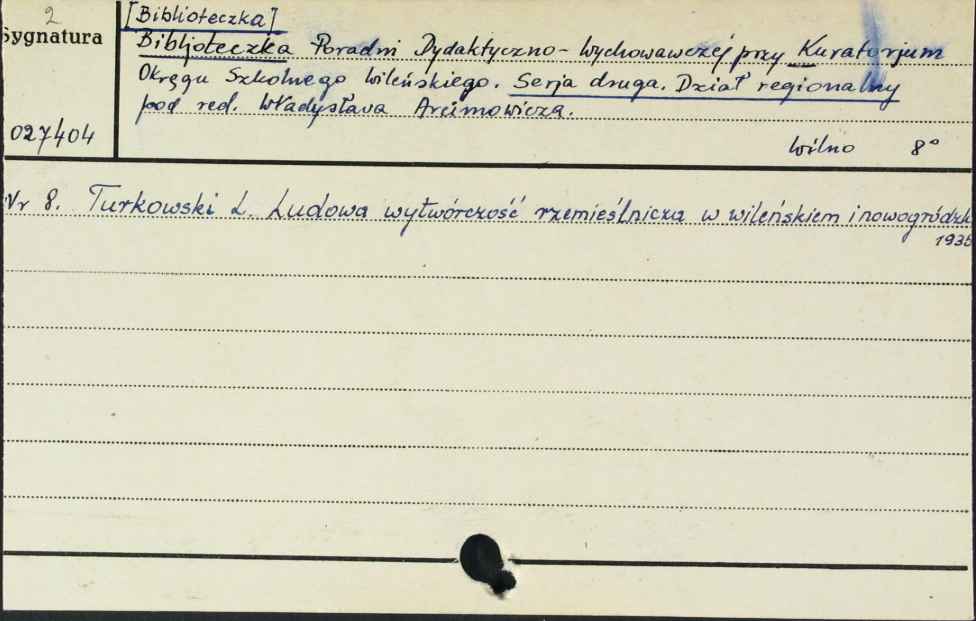 2
Sygnatura
027404
[Biblioteczka]
Bibljoteczka Poradni Dydaktyczno-Wychowawczej przy Kuratorjum
Okręgu Szkolnego Wileńskiego. Serja druga. Dział regionalny
pod red. Władysława Arcimowicza.
Wilno 8°
Nr 8. Turkowski L. Ludowa wytwórczość rzemieślnicza w wileńskiem i nowogródzk